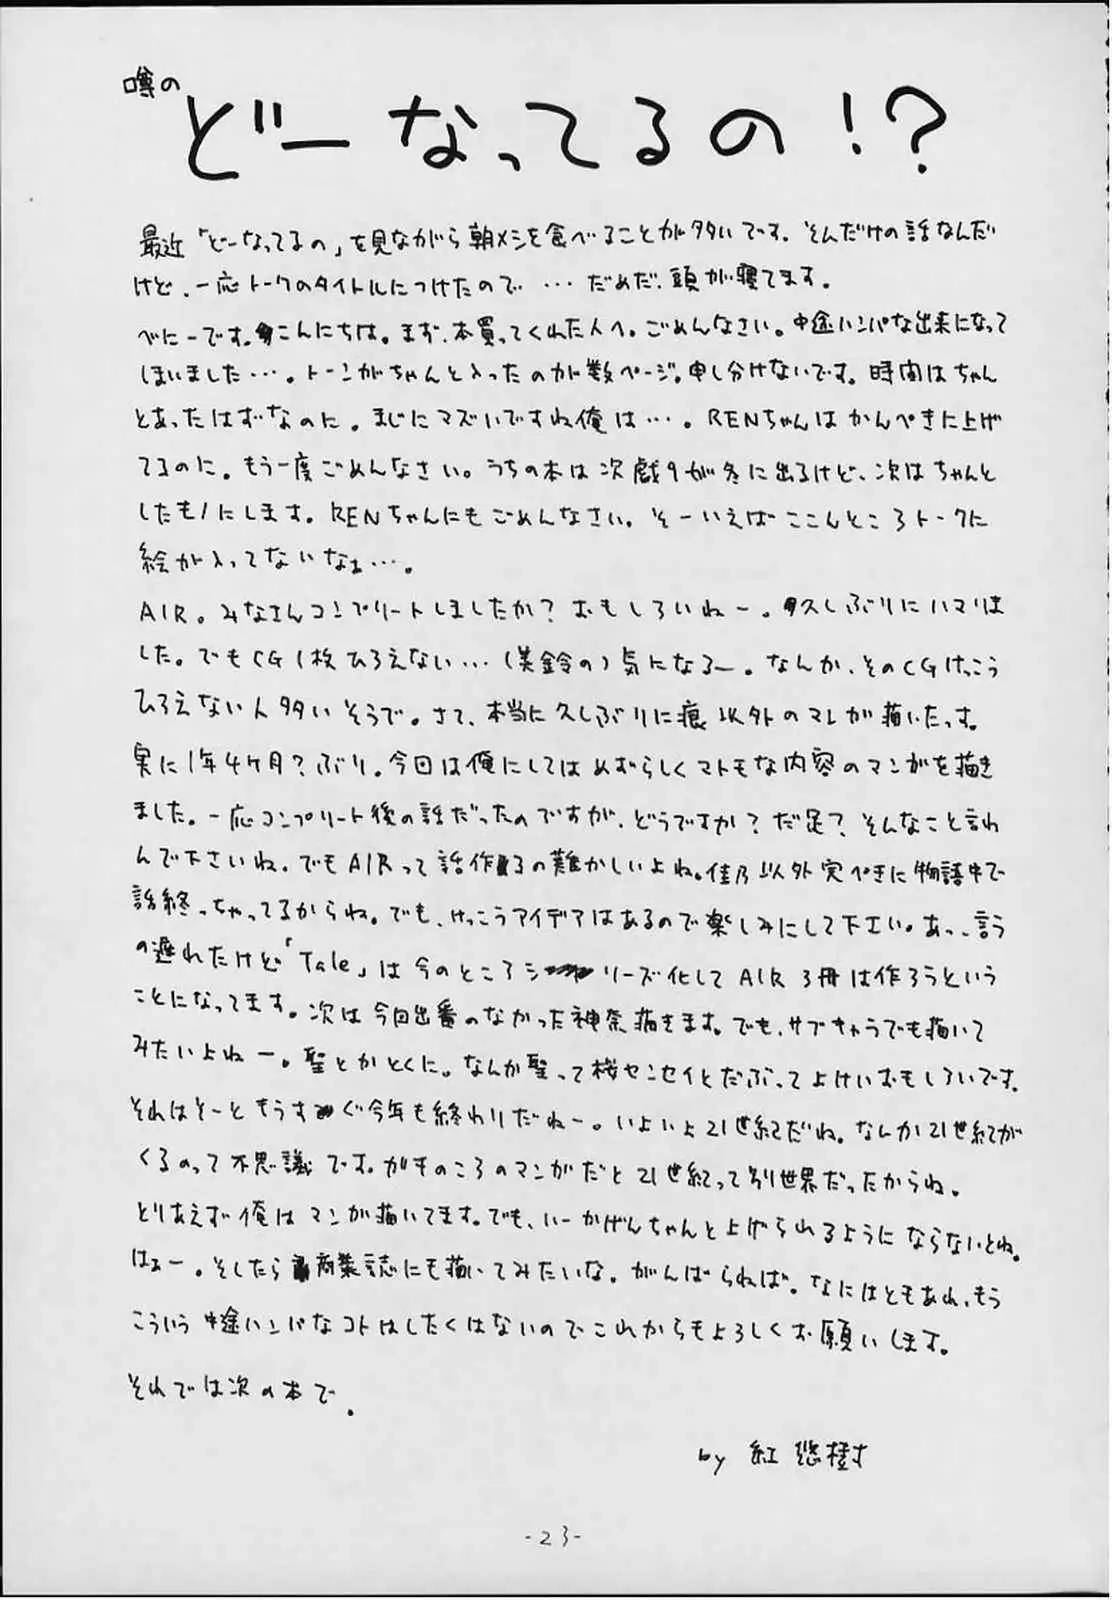 噂の
どーなってるの!?
最近「どーなってるの」を見ながら朝メシを食べることが多いです。そんだけの話なんだ
けど、一応トークのタイトルにつけたので…だめだ、頭が寝てます。
べにーです。こんにちは。まず、本買ってくれた人へ。ごめんなさい。中途ハンパな出来になって
しまいました…。トーンがちゃんと入ったのが数ページ。申し分けないです。時間はちゃん
とあったはずなのに。まじにマズいですね俺は…。RENちゃんはかんぺきに上げ
てるのに。もう一度ごめんなさい。うちの本は次戯9が冬に出るけど、次はちゃんと
したもノにします。RENちゃんにもごめんなさい。そーいえばここんところトークに
絵が入ってないなぁ…。
AIR。みなさんコンプリートしましたか?おもしろいねー。久しぶりにハマりま
した。でもCG1枚ひろえない…(美鈴の)気になるー。なんか、そのCGけっこう
ひろえない人多いそうで。さて、本当に久しぶりに痕以外のマンガ描いたっす。
実に1年4ヶ月?ぶり。今回は俺にしてはめずらしくマトモな内容のマンガを描き
ました。一応コンプリート後の話だったのですが、どうですか?だ足?そんなこと言わ
んで下さいね。でもAIRって話作るの難かしいよね。佳乃以外完ぺきに物語中で
話終っちゃってるからね。でも、けっこうアイデアはあるので楽しみにして下さい。あっ、言う
の遅れたけど「Tale」は今のところシリーズ化してAIR3冊は作ろうという
ことになってます。次は今回出番のなかった神奈描きます。でも、サブキャラでも描いて
みたいよねー。聖とかとくに。なんか聖って桜センセイとだぶってよけいおもしろいです。
それはそーともうすぐ今年も終わりだねー。いよいよ21世紀だね。なんか21世紀が
くるのって不思議です。ガキのころのマンガだと21世紀って別世界だったからね。
とりあえず俺はマンガ描いてます。でも、いーかげんちゃんと上げられるようにならないとね。
はぁー。そしたら商業誌にも描いてみたいな。がんばらねば。なにはともあれ、もう
こういう中途ハンパなコトはしたくはないのでこれからもよろしくお願いします。
それでは次の本で。
by 紅 悠樹
-23-